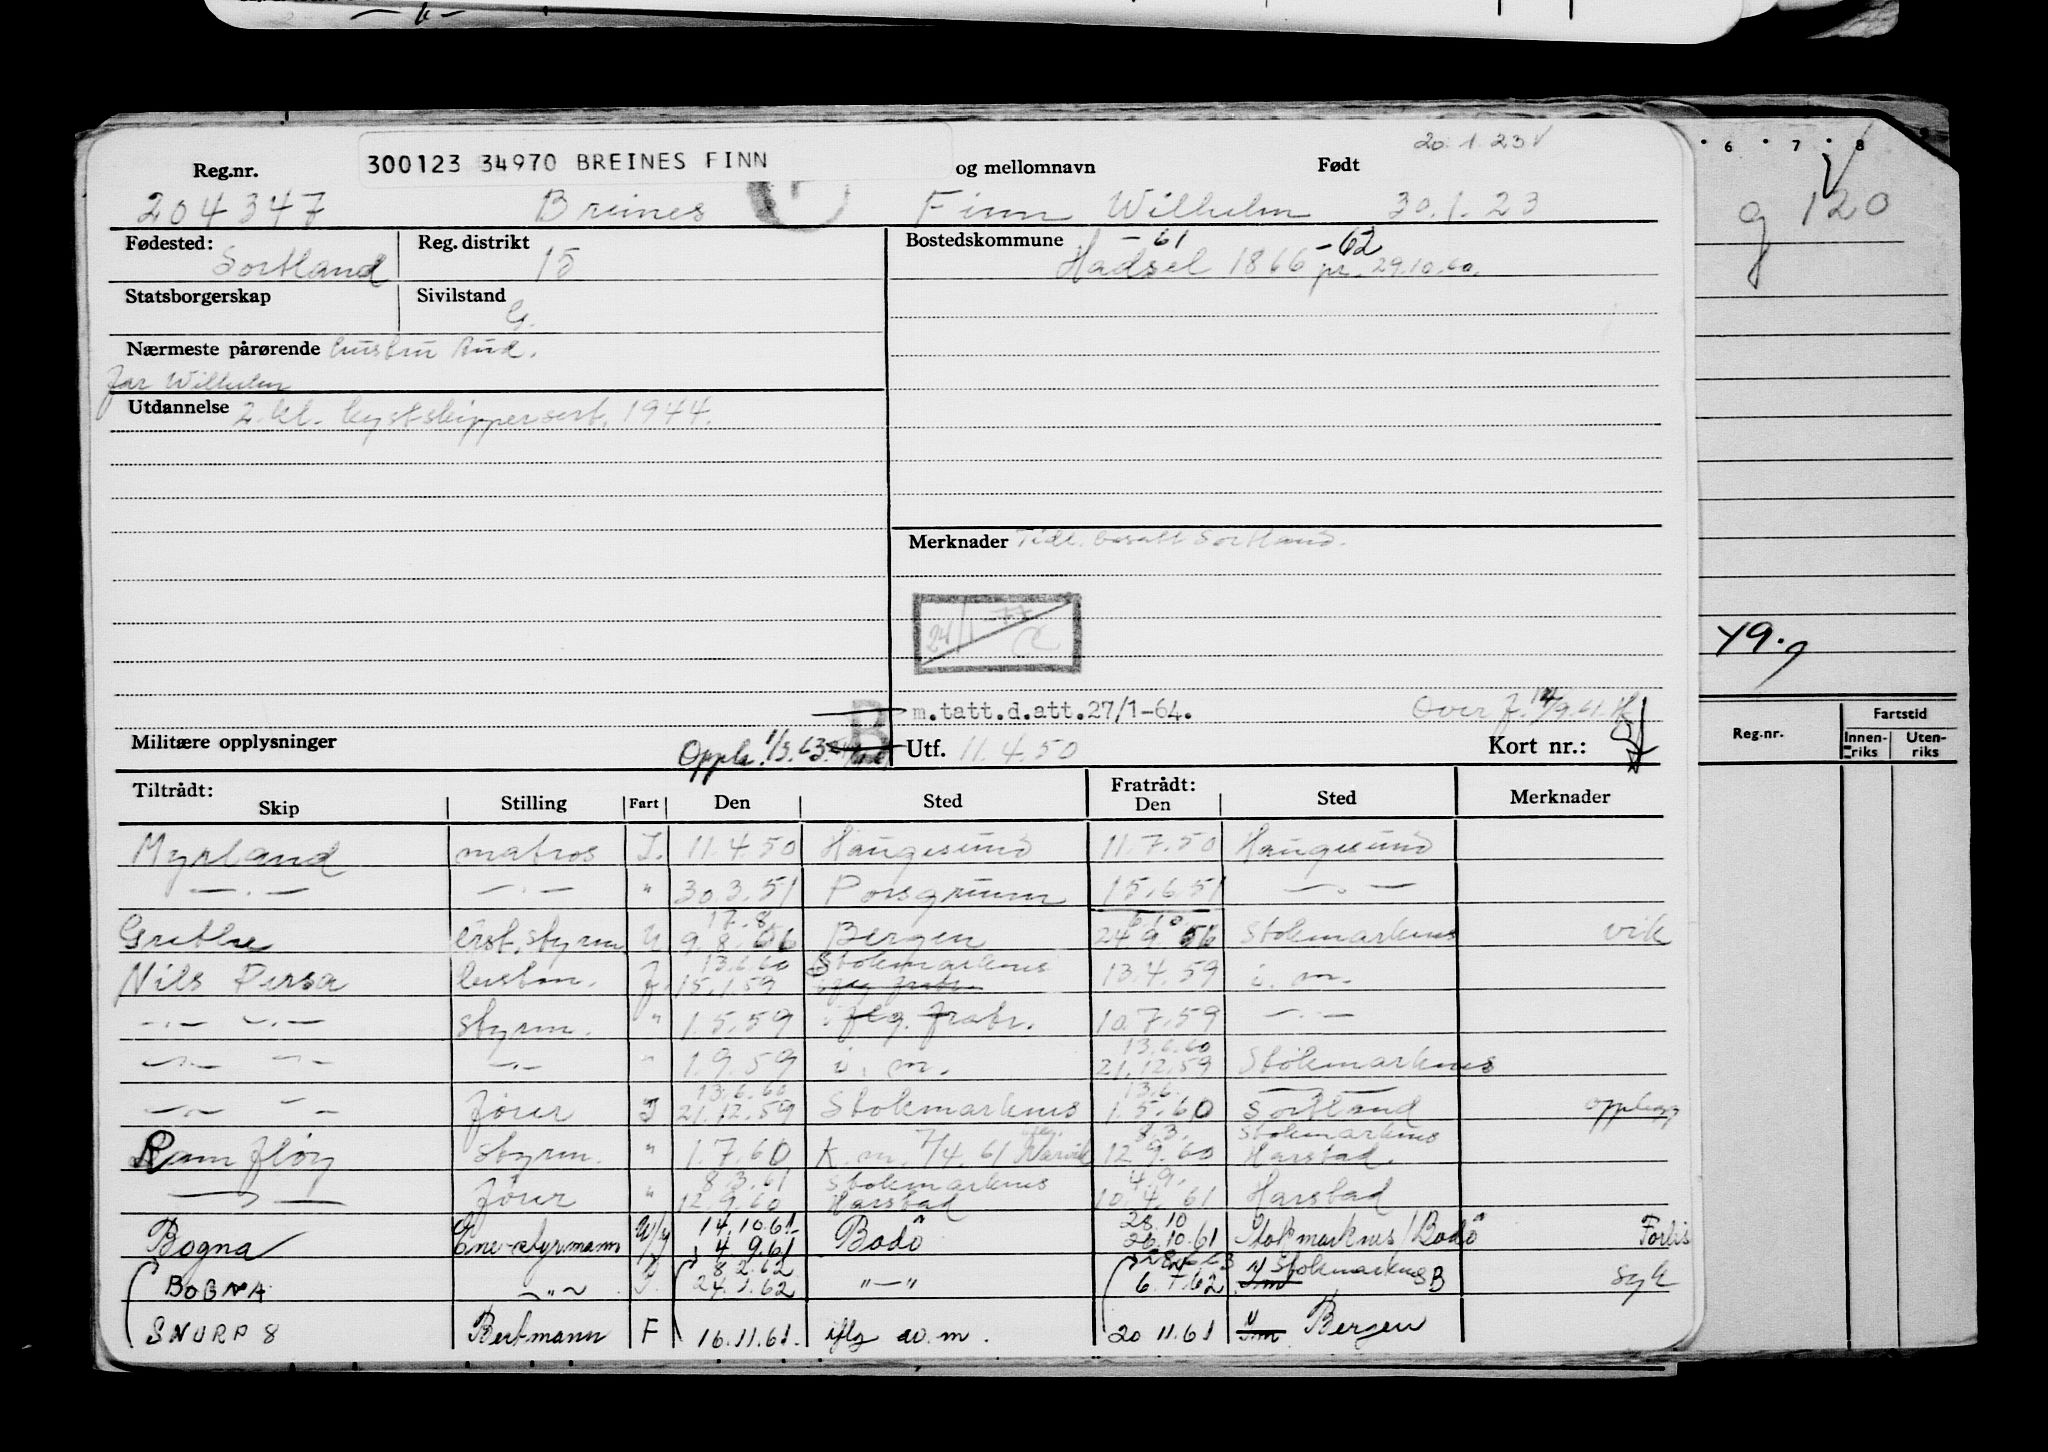 20.1.23 V
300123 34970 BREINES FINN
Reg.nr. og mellomnavn Født
204347 Breines Finn Wilhelm 30.1.23
Fødested: Sortland Reg. distrikt 15 Bostedskommune -61 -62
Hadsel 1866 pr. 29.10.60.
Statsborgerskap Sivilstand G.
Nærmeste pårørende hustru Aud.
far Wilhelm
Utdannelse 2.kl. kystskippersert. 1944.
Merknader Tidl. bosatt Sortland.
24/1-77
m.tatt.d.att.27/1-64. Over f. 14/9.61.
B
Militære opplysninger Oppls. 1/3.63. Utf. 11.4.50 Kort nr.:
Tiltrådt: Fratrådt:
Skip Stilling Fart Den Sted Den Sted Merknader
Myrland matros I. 11.4.50 Haugesund 11.7.50 Haugesund
— . — — . — " 30.3.51 Porsgrunn 15.6.51 — . —
17.8
Grethe erst. styrm U 9.8.56 Bergen 24.9.56 Stokmarknes vik
13.6.60 Stokmarknes
Nils Persa bestm. F. 15.1.59 13.4.59 i. m.
— . — — . — styrm. " 1.5.59 iflg. fratr. 10.7.59 — . —
13.6.60
— . — — . — — . — " 1.9.59 i. m. 21.12.59 Stokmarknes
13.6.60 13.6.
— . — — . — fører I 21.12.59 Stokmarknes 1.5.60 Sortland opplegg
8.3. Stokmarknes
Ramfløy styrm. " 1.7.60 k.m. 7/4.61 Narvik 12.9.60 Harstad.
8.3.61 Stokmarknes 4.9.
— . — fører " 12.9.60 Harstad 10.4.61 Harstad
14.10.61 28.10
Bogna Ene-styrmann U/I 4.9.61 Bodö 26.10.61 Stokmarknes/Bodö Forlis
8.2.62 Stokmarknes
BOGNA — " — 24.1.62 " — " 6.1.62 B syk
SNURP 8 Bestmann F 16.11.61. iflg av.m. 20 11.61 Bergen
6 7 8
g 120
49.g
Reg.nr. Fartstid
Innen-riks Uten-riks